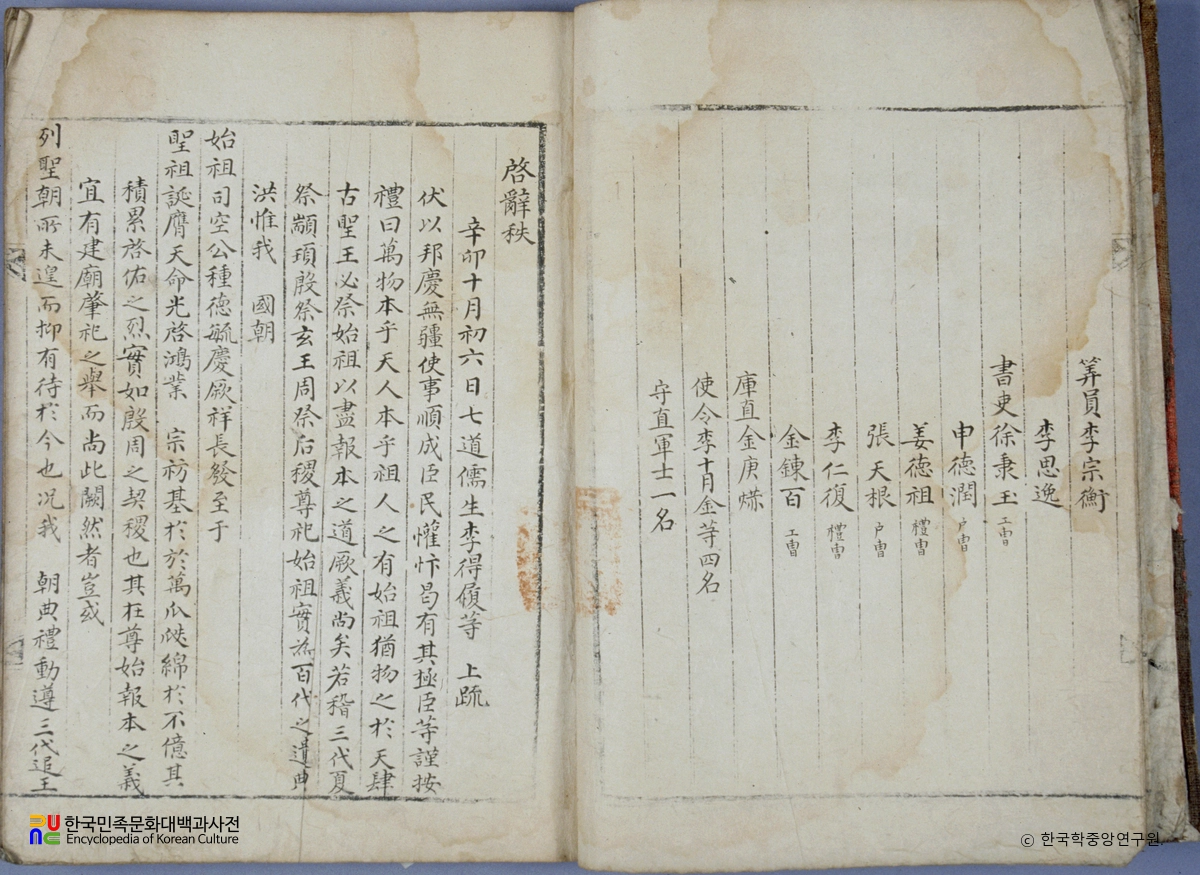 筭員李宗衡
李思逸
書吏徐秉玉 工曹
申德潤 戶曹
姜德祖 禮曹
張天根 戶曹
李仁復 禮曹
金鍊百 工曹
庫直金庚㷨
使令李十月金等四名
守直軍士一名
啓辭秩
辛卯十月初六日七道儒生李得履等 上疏
伏以邦慶無疆使事順成臣民懽忭曷有其極臣等謹按
禮曰萬物本乎天人本乎祖人之有始祖猶物之於天肆
古聖王必祭始祖以盡報本之道厥義尙矣若稽三代夏
祭顓頊殷祭玄王周祭后稷尊祀始祖實爲百代之遺典
洪惟我 國朝
始祖司空公種德毓慶厥祥長發至于
聖祖誕膺天命光啓鴻業 宗祊基於於萬瓜瓞綿於不億其
積累啓佑之烈實如殷周之契稷也其在尊始報本之義
宜有建廟肇祀之擧而尙此闕然者豈或
列聖朝所未遑而抑有待於今也况我 朝典禮動遵三代追王
한국민족문화대백과사전
Encyclopedia of Korean Culture
ⓒ 한국학중앙연구원